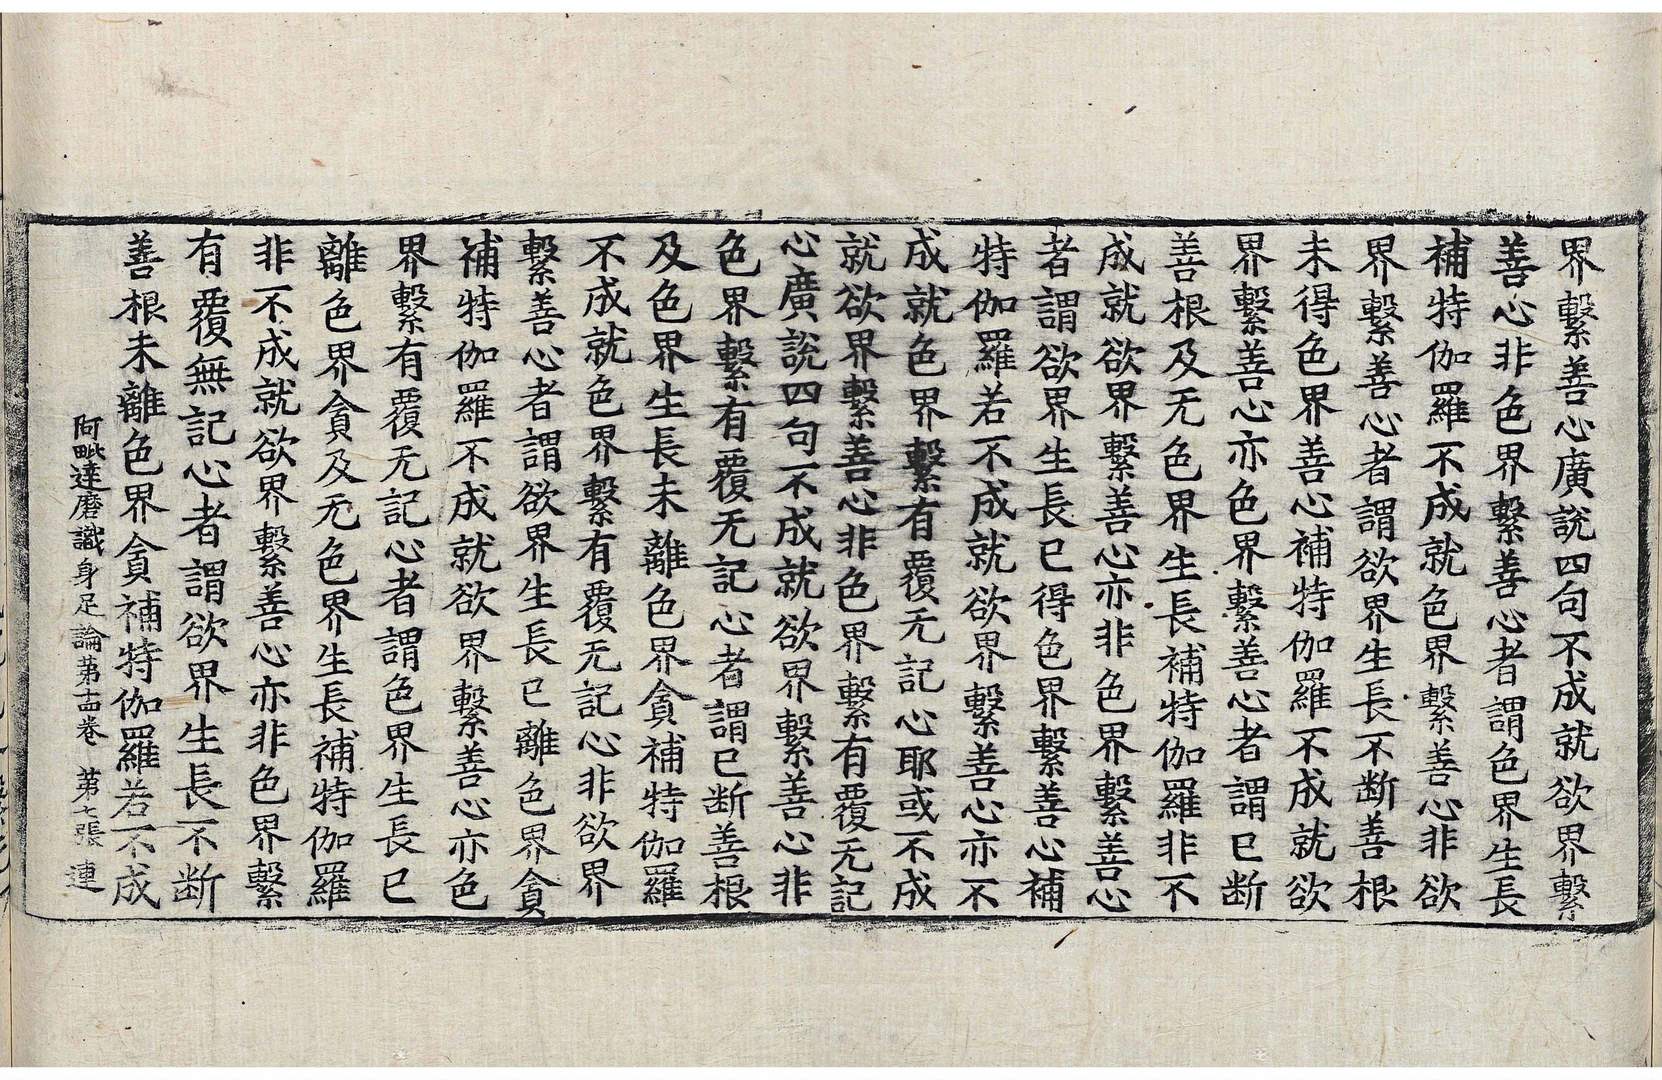 界繫善心廣說四句不成就欲界繫
善心非色界繫善心者謂色界生長
補特伽羅不成就色界繫善心非欲
界繫善心者謂欲界生長不断善根
未得色界善心補特伽羅不成就欲
界繫善心亦色界繫善心者謂已断
善根及无色界生長補特伽羅非不
成就欲界繫善心亦非色界繫善心
者謂欲界生長已得色界繫善心補
特伽羅若不成就欲界繫善心亦不
成就色界繫有覆无記心耶或不成
就欲界繫善心非色界繫有覆无記
心廣說四句不成就欲界繫善心非
色界繫有覆无記心者謂已断善根
及色界生長未離色界貪補特伽羅
不成就色界繫有覆无記心非欲界
繫善心者謂欲界生長已離色界貪
補特伽羅不成就欲界繫善心亦色
界繫有覆无記心者謂色界生長已
離色界貪及无色界生長補特伽羅
非不成就欲界繫善心亦非色界繫
有覆無記心者謂欲界生長不断
善根未離色界貪補特伽羅若不成
阿毗達磨識身足論第十四卷　第七張　連